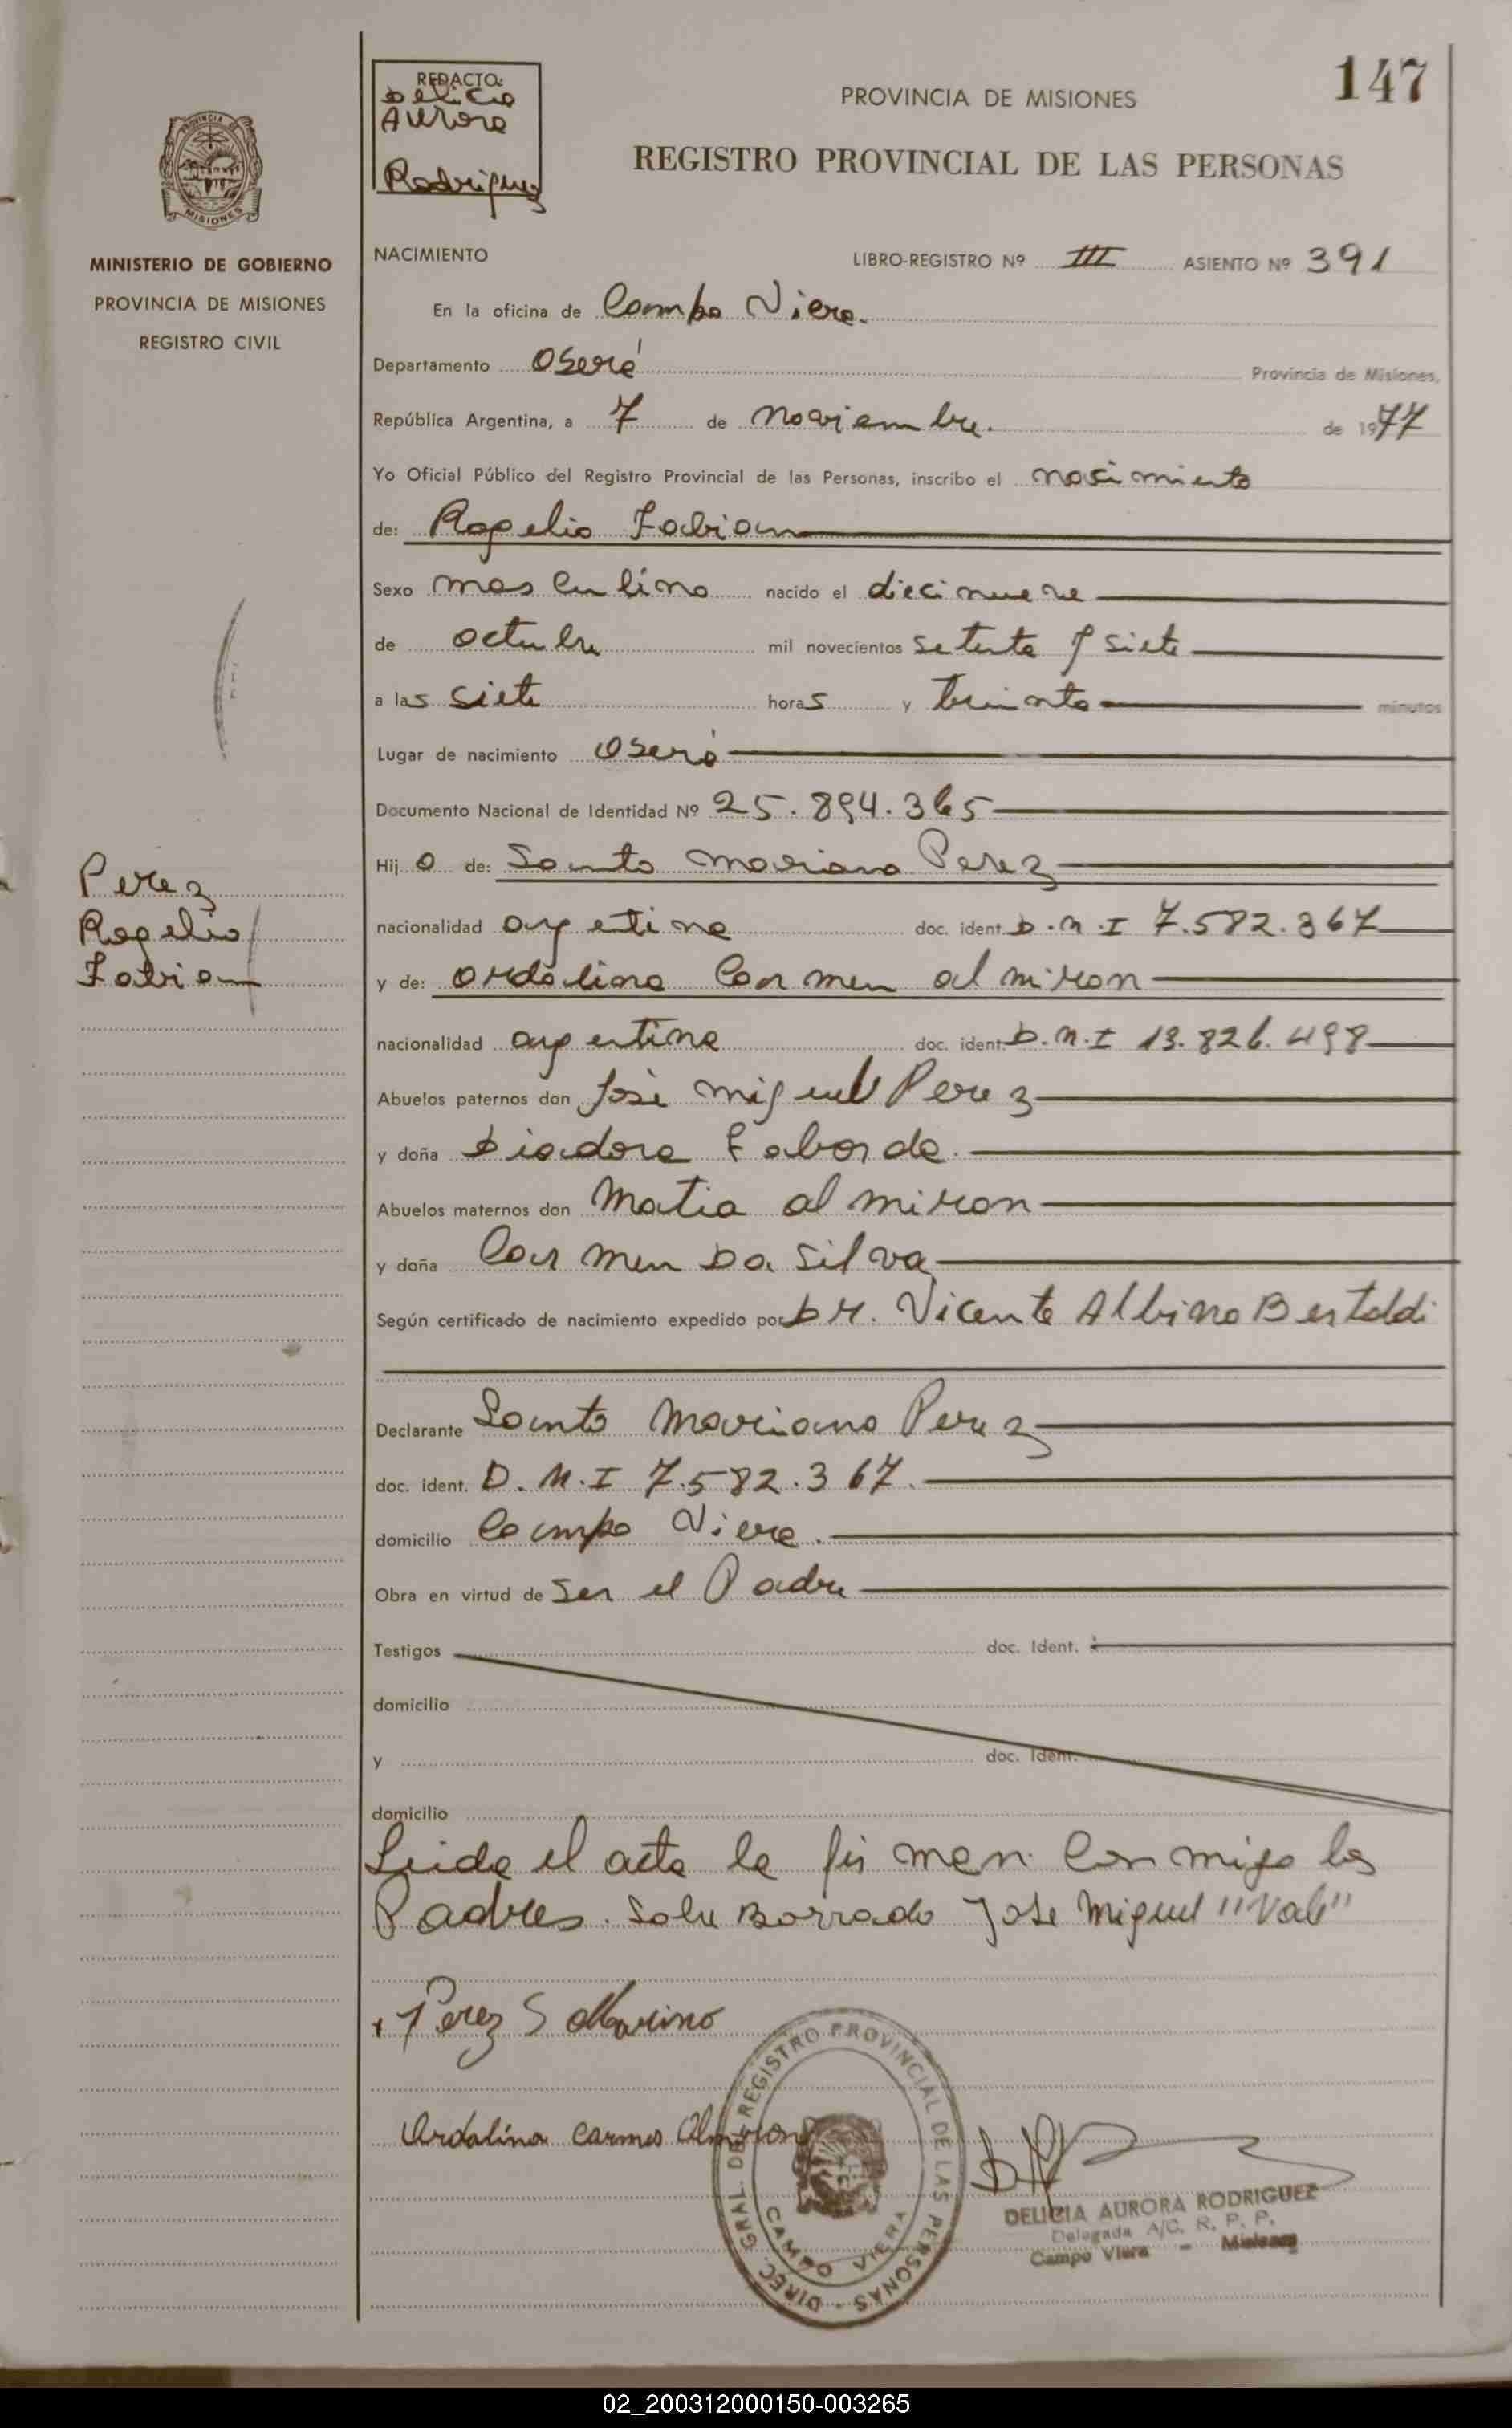 147
REDACTO:
Delicia
Aurora
Rodriguez
PROVINCIA DE MISIONES
REGISTRO PROVINCIAL DE LAS PERSONAS
PROVINCIA DE
MISIONES
MINISTERIO DE GOBIERNO
PROVINCIA DE MISIONES
REGISTRO CIVIL
NACIMIENTO LIBRO-REGISTRO Nº III ASIENTO Nº 391
En la oficina de Campo Viera.
Departamento Oberá Provincia de Misiones,
República Argentina, a 7 de noviembre. de 1977
Yo Oficial Público del Registro Provincial de las Personas, inscribo el nacimiento
de: Rogelio Fabian
Sexo masculino nacido el diecinueve
de octubre mil novecientos setenta y siete
a las siete horas y treinta minutos
Lugar de nacimiento Oberá
Documento Nacional de Identidad Nº 25.894.365
Hijo de: Santo Mariano Perez
nacionalidad argentina doc. ident. D.N.I 7.582.367
y de: Ordalina Carmen almiron
nacionalidad argentina doc. ident. D.N.I 13.826.498
Abuelos paternos don José Miguel Perez
y doña Diadora Laborde.
Abuelos maternos don Matia almiron
y doña Carmen Da Silva
Según certificado de nacimiento expedido por Dr. Vicente Albino Bertoldi
Declarante Santo Mariano Perez
doc. ident. D.N.I 7.582.367.
domicilio Campo Viera.
Obra en virtud de ser el Padre
Testigos doc. Ident.
domicilio
y doc. Idem.
domicilio
Leida el acta la firman conmigo los
Padres. Sobre Borrado Jose Miguel "Vale"
Perez
Rogelio
Fabian
Perez S Marino
Ordalina Carmen Almiron
DIREC. GRAL. DEL REGISTRO PROVINCIAL DE LAS PERSONAS
CAMPO VIERA
DELICIA AURORA RODRIGUEZ
Delegada A/C. R. P. P.
Campo Viera - Misiones
02_200312000150-003265